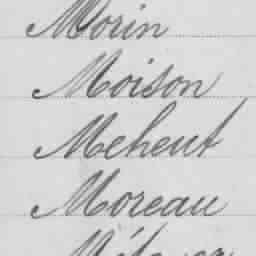 Morin
Moison
Meheut
Moreau